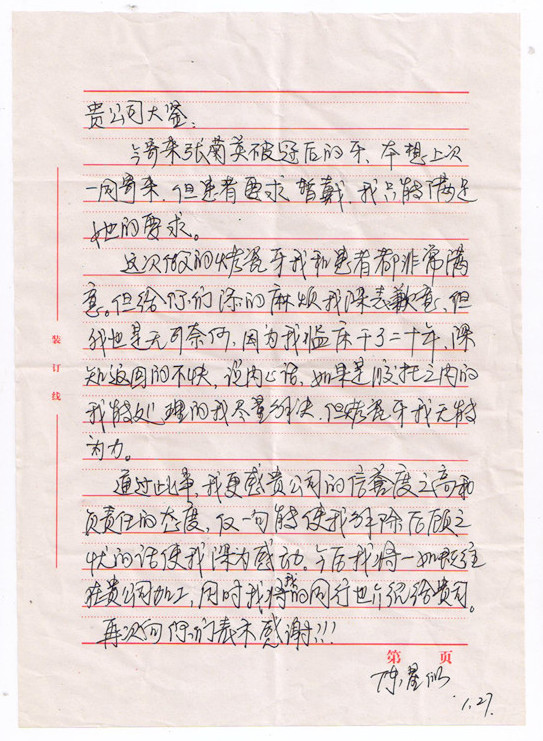 贵公司大鉴:
今寄来张菊英破冠后的牙、本想上次
一同寄来,但患者要求暂戴,我只能满足
她的要求。
这次做的烤瓷牙我和患者都非常满
意。但给你们添的麻烦我深表歉意,但
我也是无可奈何,因为我临床干了二十年,深
知返回的不快,说内心话,如果是胶托之内的
我能处理的我尽量解决,但烤瓷牙我无能
为力。
通过此事,我更感贵公司的信誉度之高和
负责任的态度,仅一句能使我解除后顾之
忧的话使我深为感动。今后我将一如既往
在贵公司加工,同时我将我的同行也介绍给贵司。
再次向你们表示感谢!!!
装
订
线
第 页
陈
1.27.